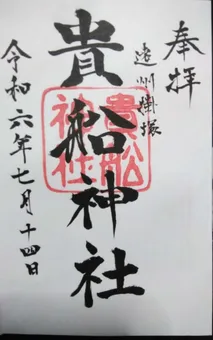 奉拝
遠州掛塚
貴船神社
貴船
神社
令和六年七月十四日